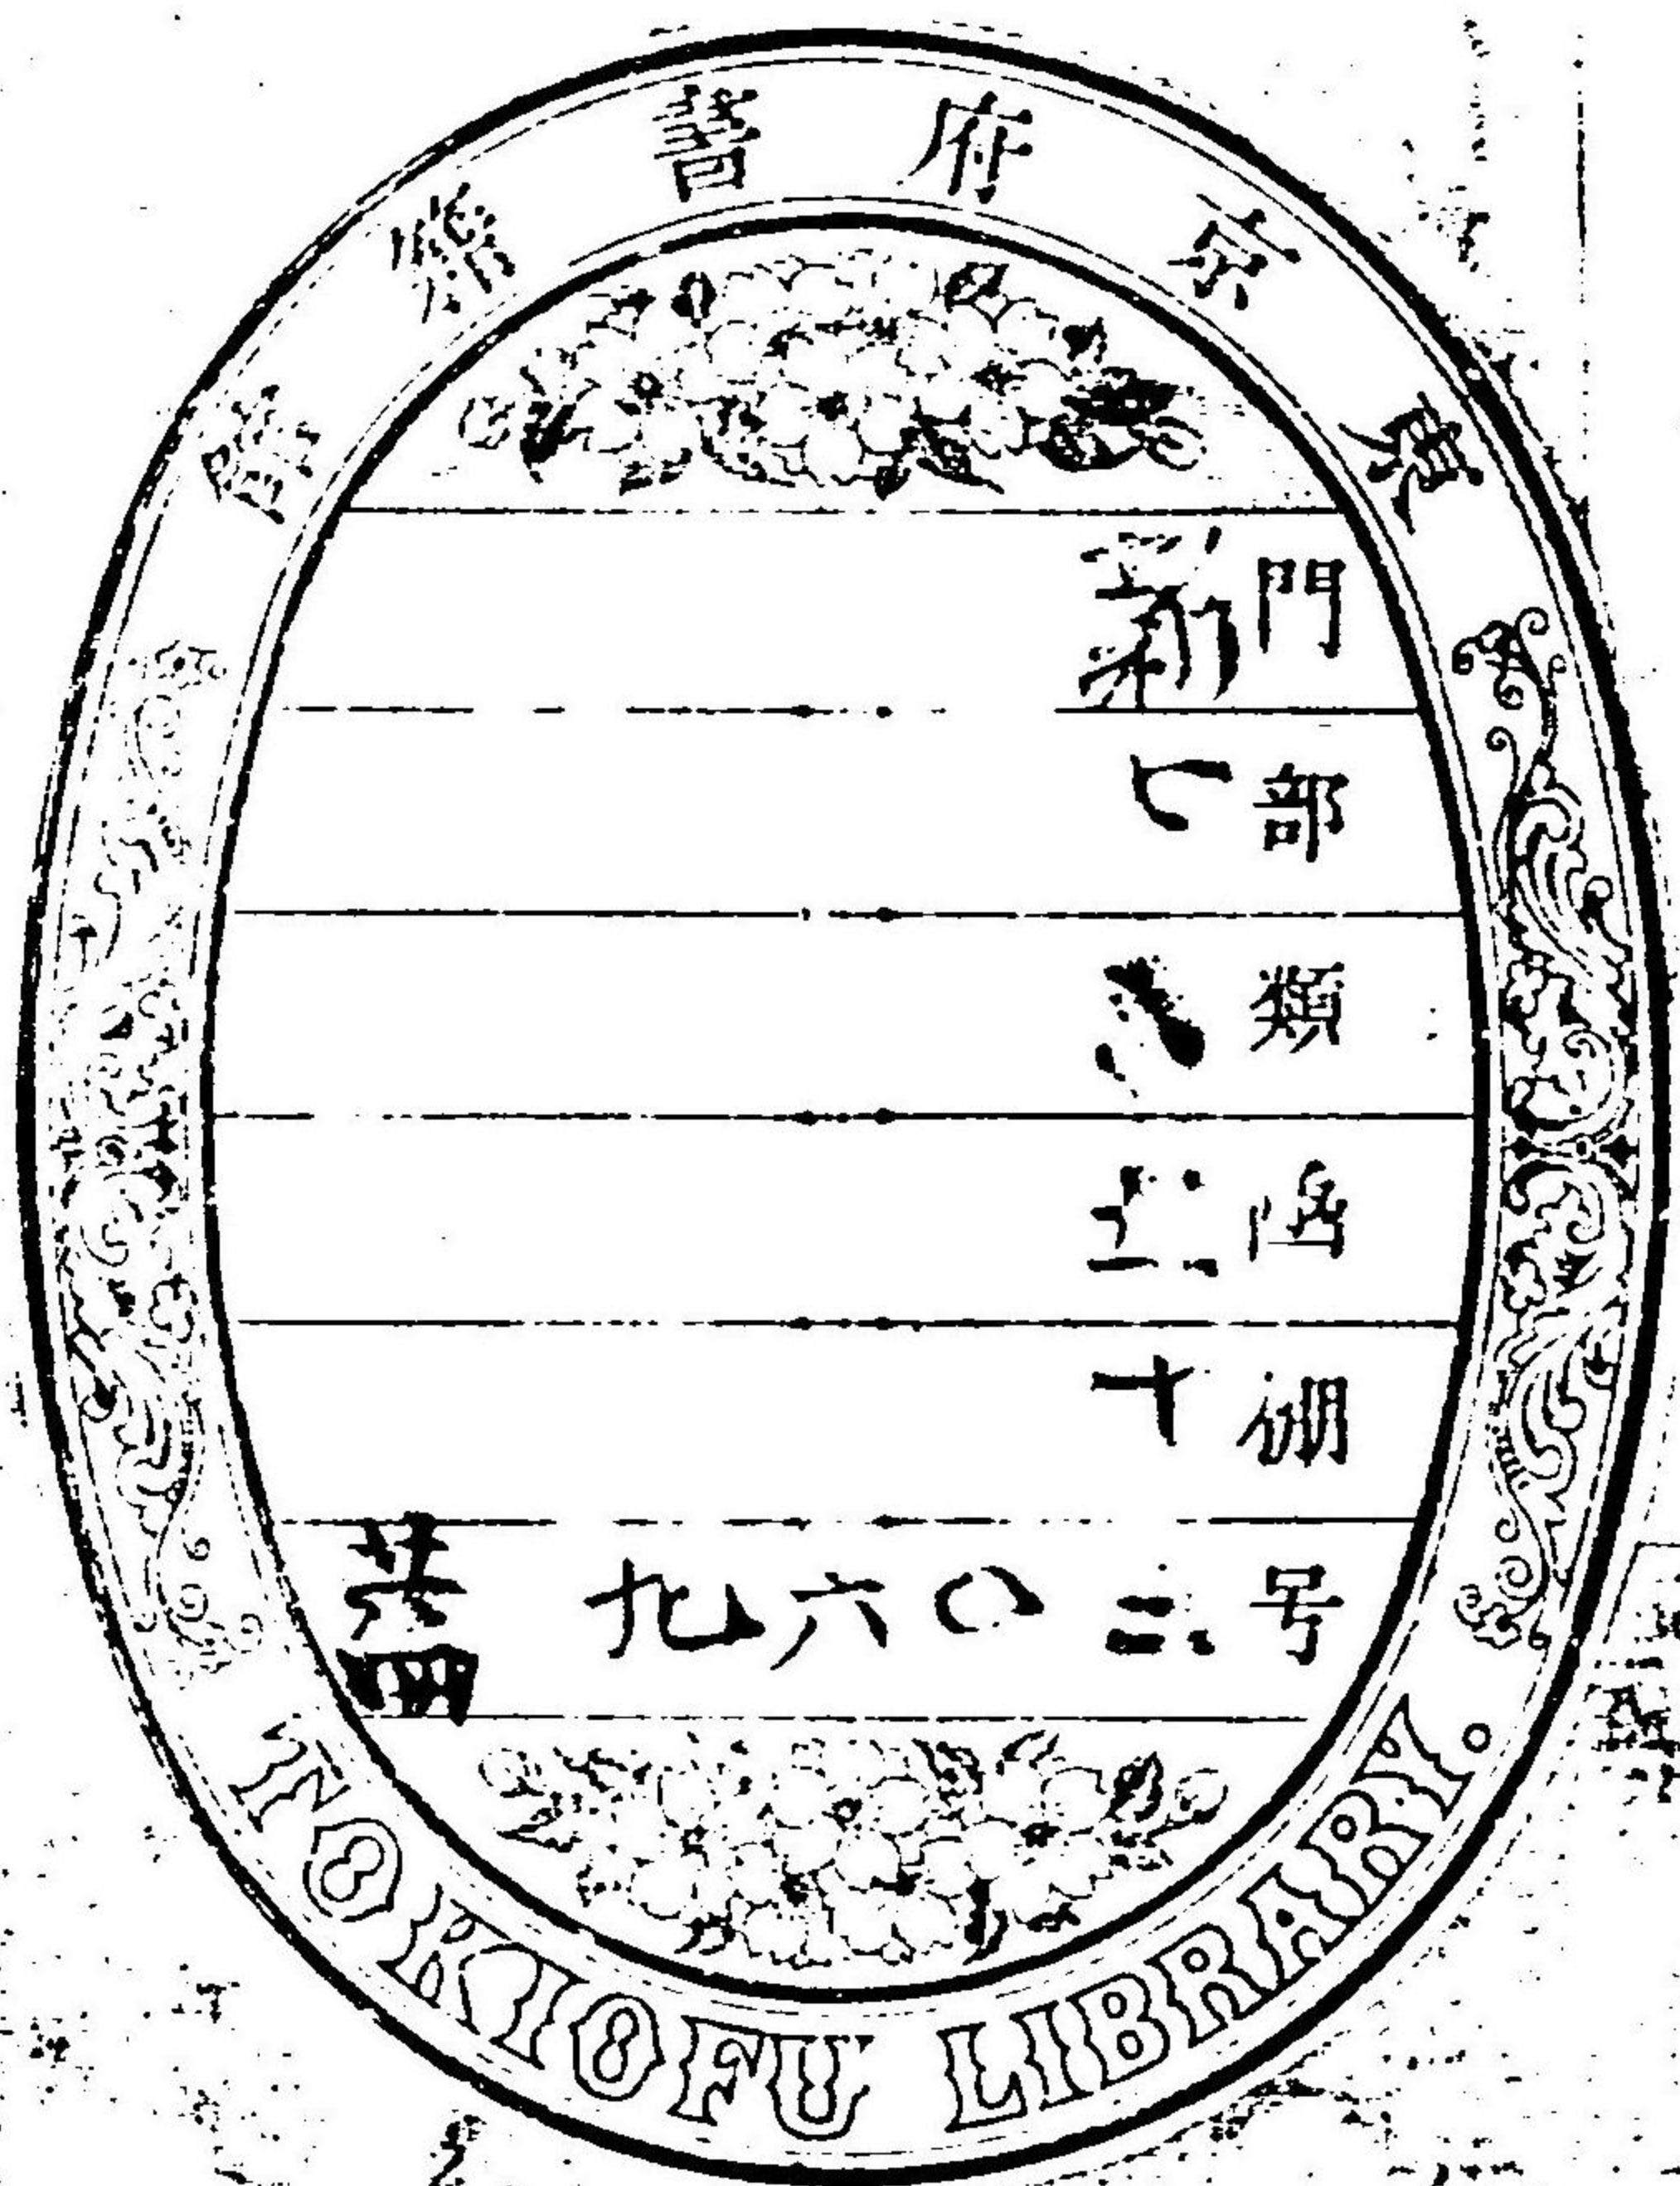 東京府書籍館
門 新
部
類
函
棚 十
号 二〇六九
共 四
TOKIOFU LIBRARY.